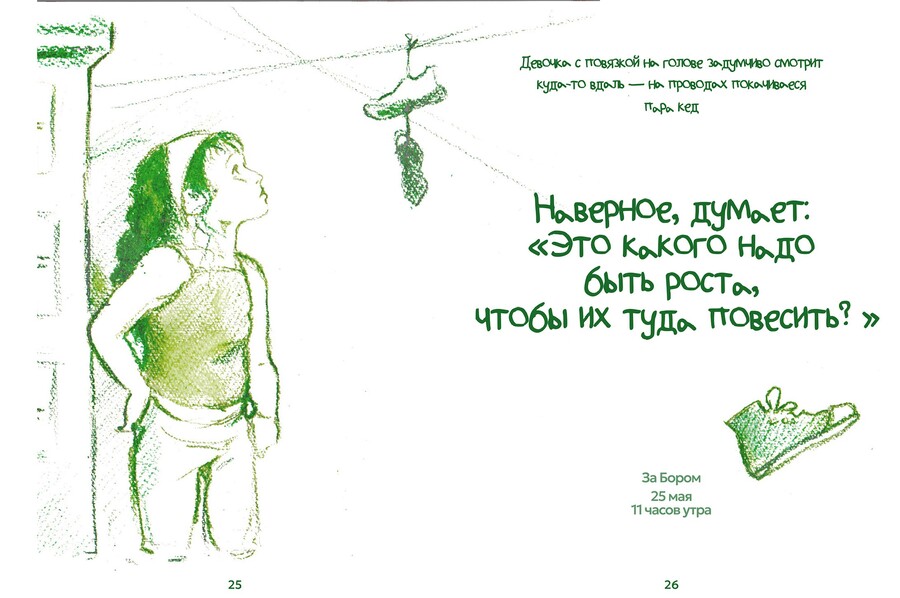 Девочка с повязкой на голове задумчиво смотрит
куда-то вдаль — на проводах покачиваеся
пара кед
Наверное, думает:
«Это какого надо
быть роста,
чтобы их туда повесить? »
За Бором
25 мая
11 часов утра
25
26